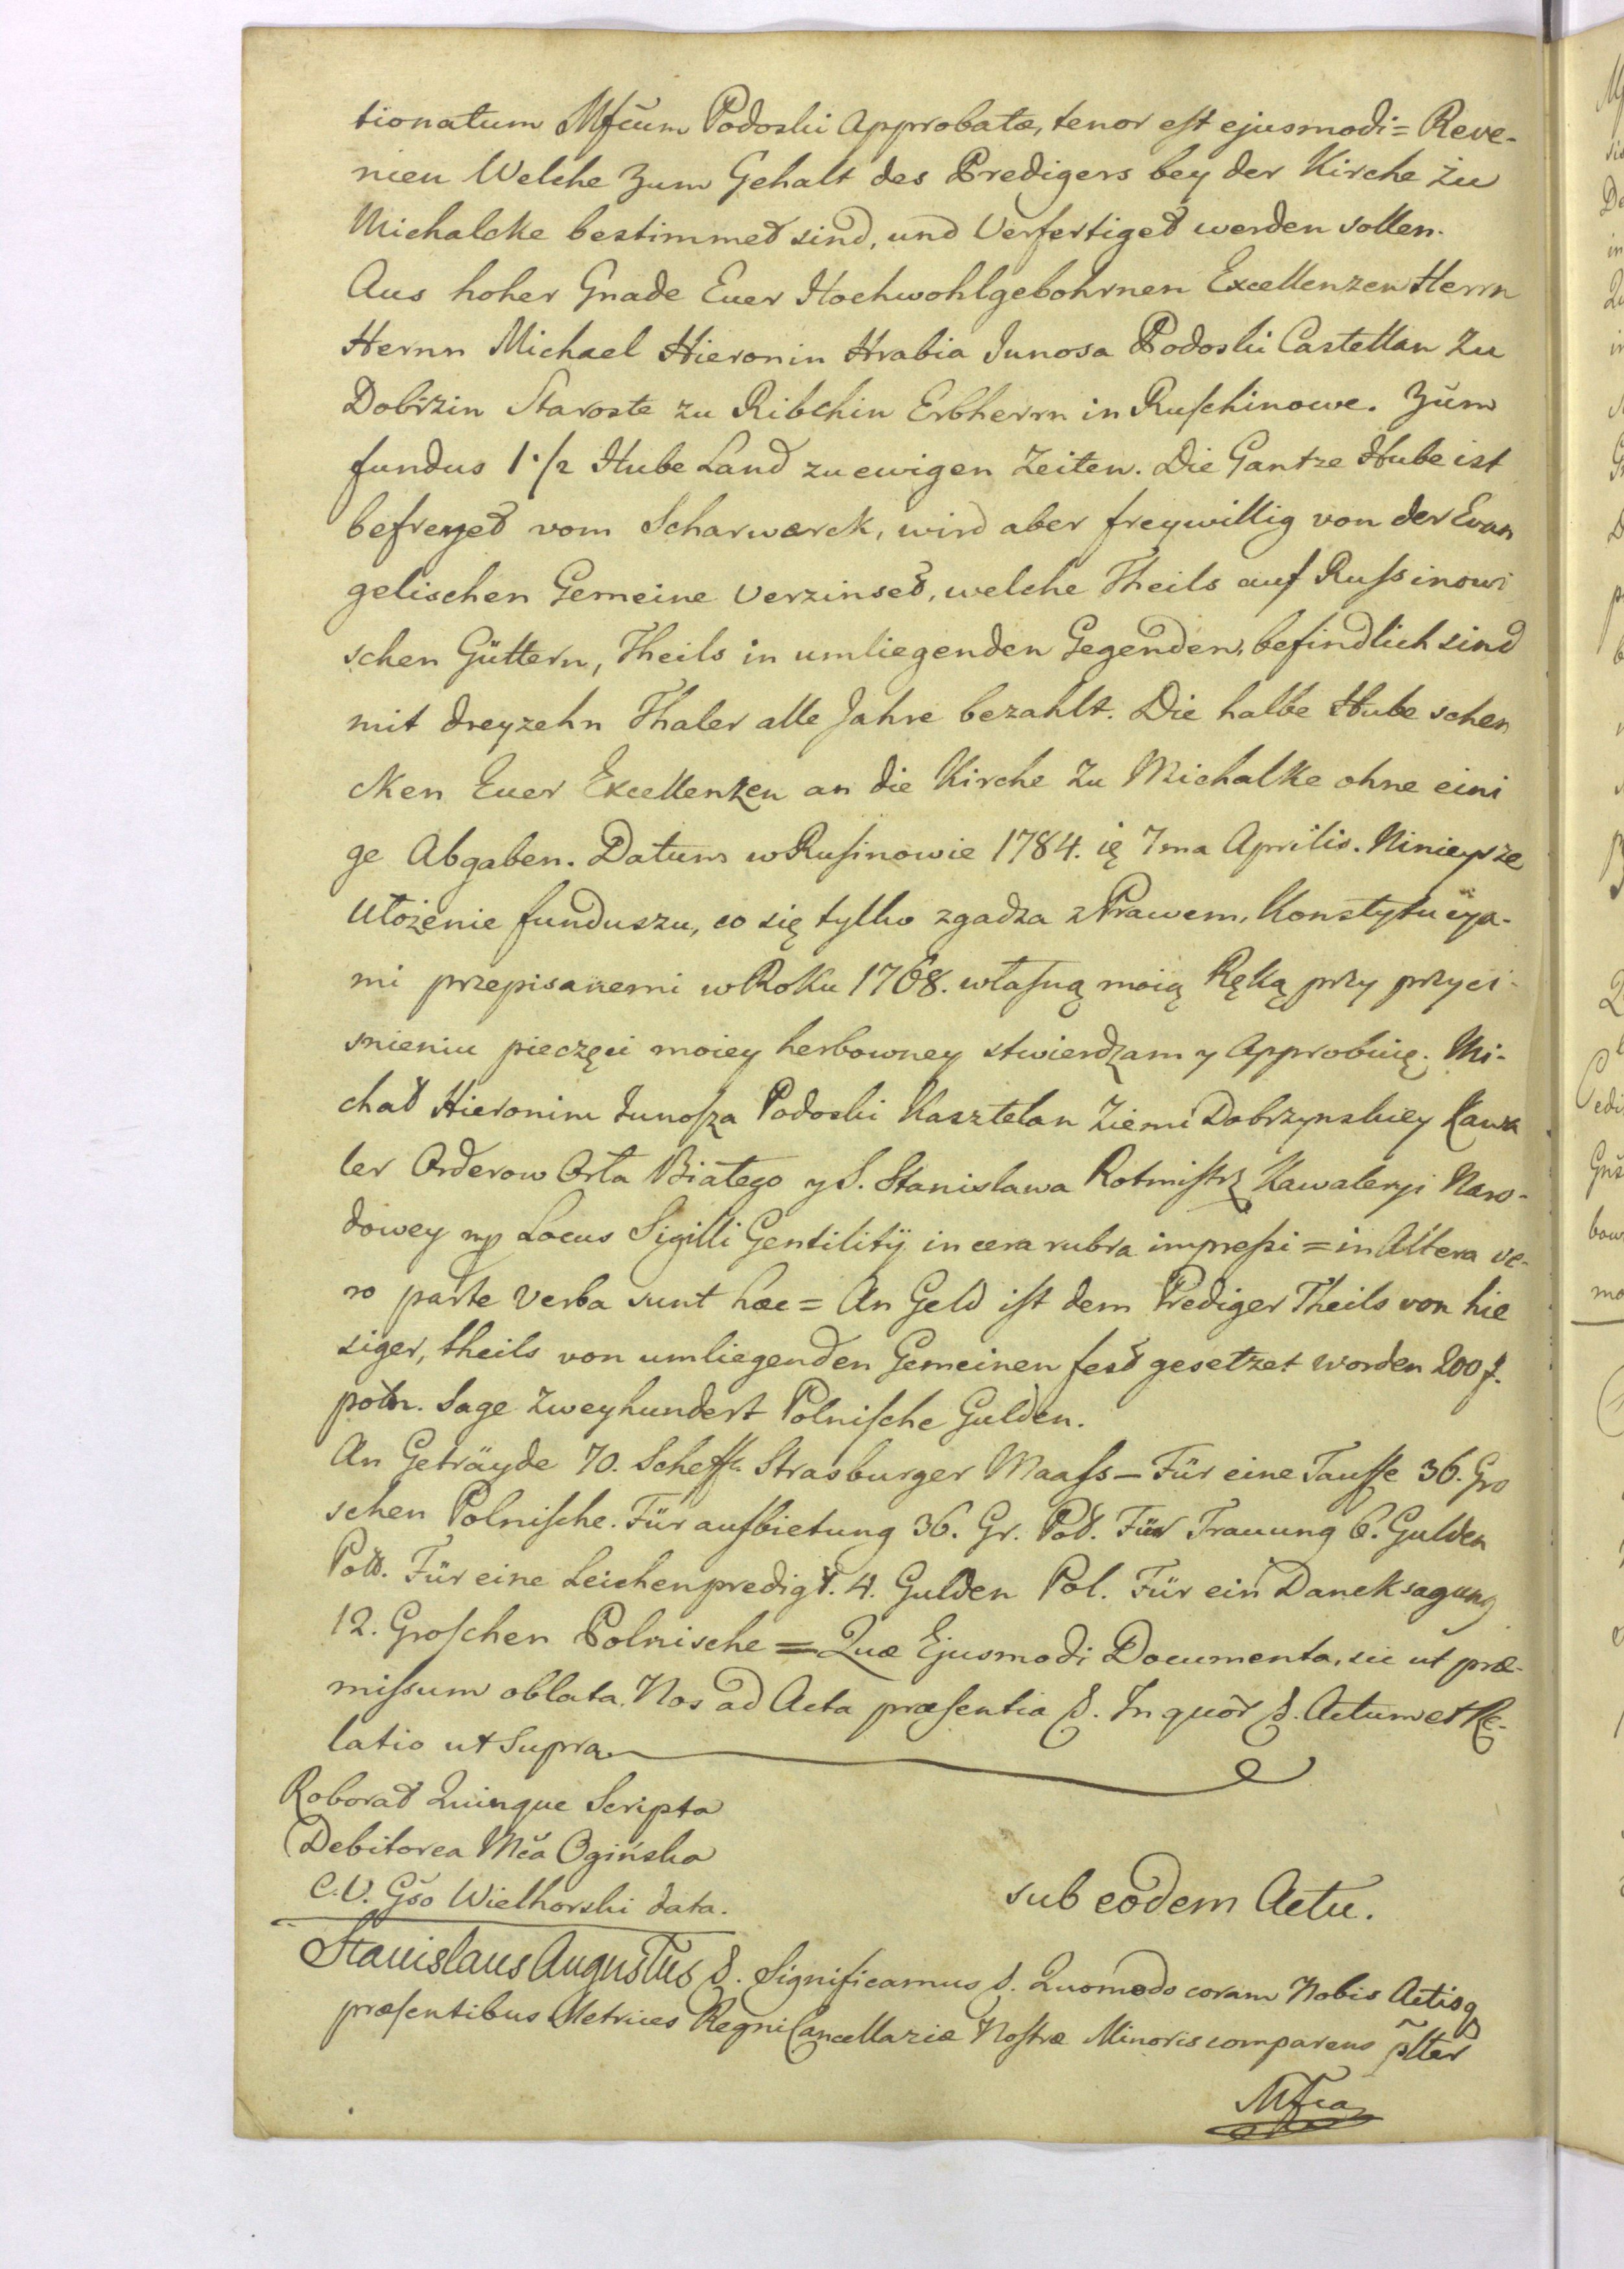 tionatum Mfcum Podoski Approbatæ, tenor est ejusmodi = Reve-
nien Welche zum Gehalt des Predigers bey der Kirche zu
Michalcke bestimmet sind, und Verfertiget werden sollen.
Aus hoher Gnade Euer Hochwohlgebohrnen Excellenzen Herrn
Hernn Michael Hieronin Hrabia Junosa Podoski Castellan Zu
Dobrzin Staroste zu Ribchin Erbherrn in Ruschinowe. Zum
fundus 1 1/2 Hube Land zu ewigen Zeiten. Die Gantze Hube ist
befreyet vom Scharwerck, wird aber freywillig von der Evan
gelischen Gemeine Verzinset, welche Theils auf Russinowi
schen Güttern, Theils in umliegenden Gegenden, befindlich sind
mit dreyzehn Thaler alle Jahre bezahlt. Die halbe Hube schen
cken Euer Excellenzen an die Kirche Zu Michalke ohne eini
ge Abgaben. Datum w Rusinowie 1784. ię 7ma Aprilis. Ninieysze
Ułożenie funduszu, co się tylko zgadza z Prawem, Konstytucya-
mi przepisanemi w Roku 1768. własną moią Ręką przy przyci-
snieniu pieczęci moiey herbowney stwierdzam y Approbuię. Mi-
chał Hieronim Junosza Podoski Kasztelan Ziemi Dobrzynskiey Kawa
ler Orderow Orła Białego y S. Stanisława Rotmistrz Kawaleryi Naro-
dowey mp Locus Sigilli Gentilitÿ in cera rubra impressi = in Altera ve-
ro parte Verba sunt hæc = An Geld ist dem Prediger Theils von hie
siger, theils von umliegenden Gemeinen fest gesetzet worden 200 f.
poln. Sage Zweyhundert Polnische Gulden.
An Geträyde 70. Scheffl. Strasburger Maass – Für eine Tauffe 36. Gro
schen Polnische. Für aufbietung 36. Gr. Pol. Für Trauung 6. Gulden
Pol. Für eine Leichenpredigt. 4. Gulden Pol. Für ein Dancksagung
12. Groschen Polnische = Quæ Ejusmodi Documenta, sic ut præ-
missum oblata. Nos ad Acta præsentia &. In quor &. Actum et Re-
latio ut Supra
Roborat Quinque Scripta
Debitorea Mca Ogińska
C. V. Gso Wielhorski data.
sub eodem Actu.
Stanislaus Augustus &. Significamus &. Quomodo coram Nobis Actisq
præsentibus Metrices Regni Cancellariæ Nostræ Minoris comparens pltter
Mfca